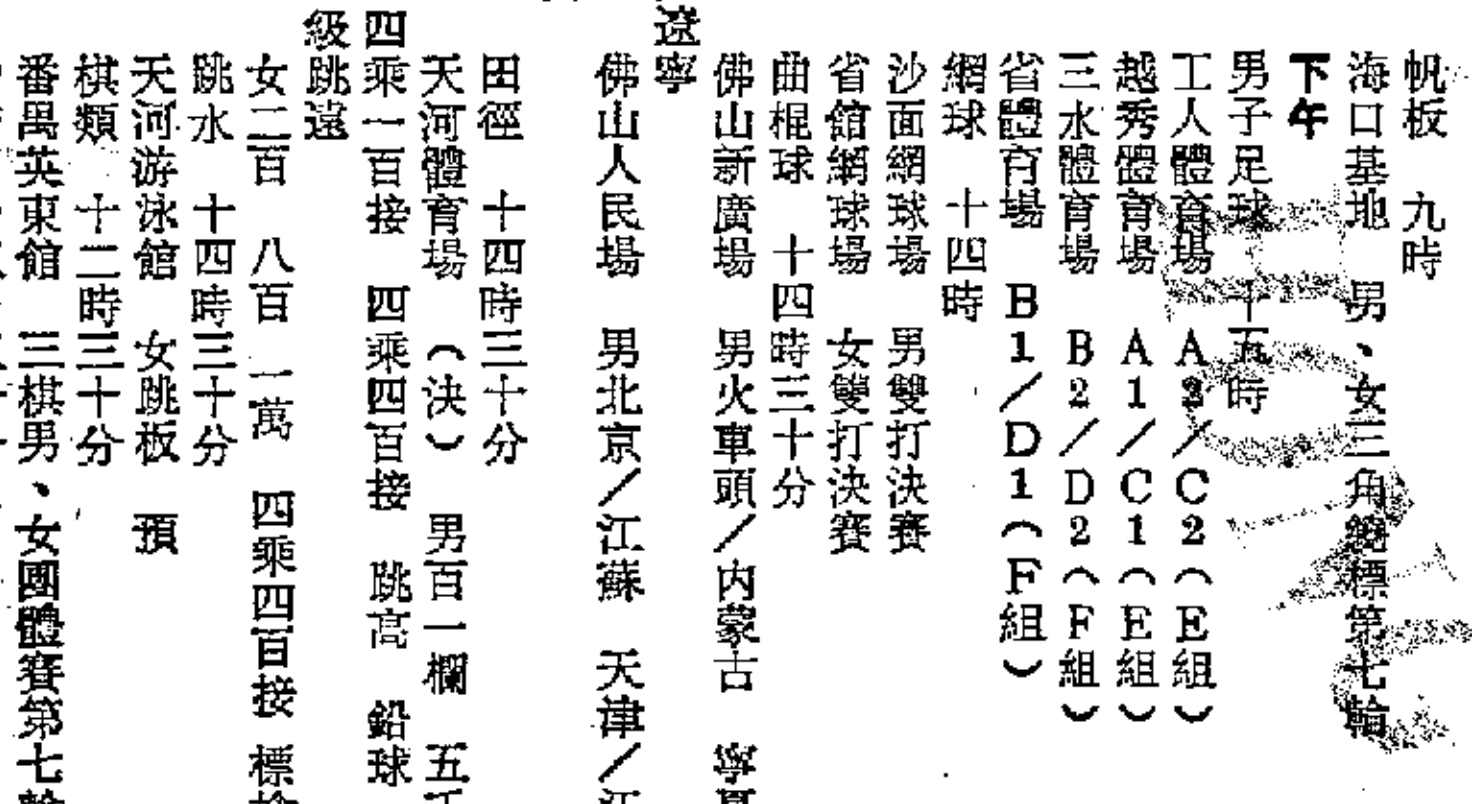 帆板　九時
海口基地　男、女三角繞標第七輪
下午
男子足球　十五時
工人體育場　A3／C2（E組）
越秀體育場　A1／C1（E組）
三水體育場　B2／D2（F組）
省體育場　B1／D1（F組）
網球　十四時
沙面網球場　男雙打決賽
省館網球場　女雙打決賽
曲棍球　十四時三十分
佛山新廣場　男火車頭／內蒙古　寧夏
遼寧
佛山人民場　男北京／江蘇　天津／江
田徑　十四時三十分
天河體育場　（決）　男百一欄　五千
四乘一百接　四乘四百接　跳高　鉛球
級跳遠
女二百　八百　一萬　四乘四百接　標槍
跳水　十四時三十分
天河游泳館　女跳板　預
棋類　十二時三十分
番禺英東館　三棋男、女團體賽第七輪